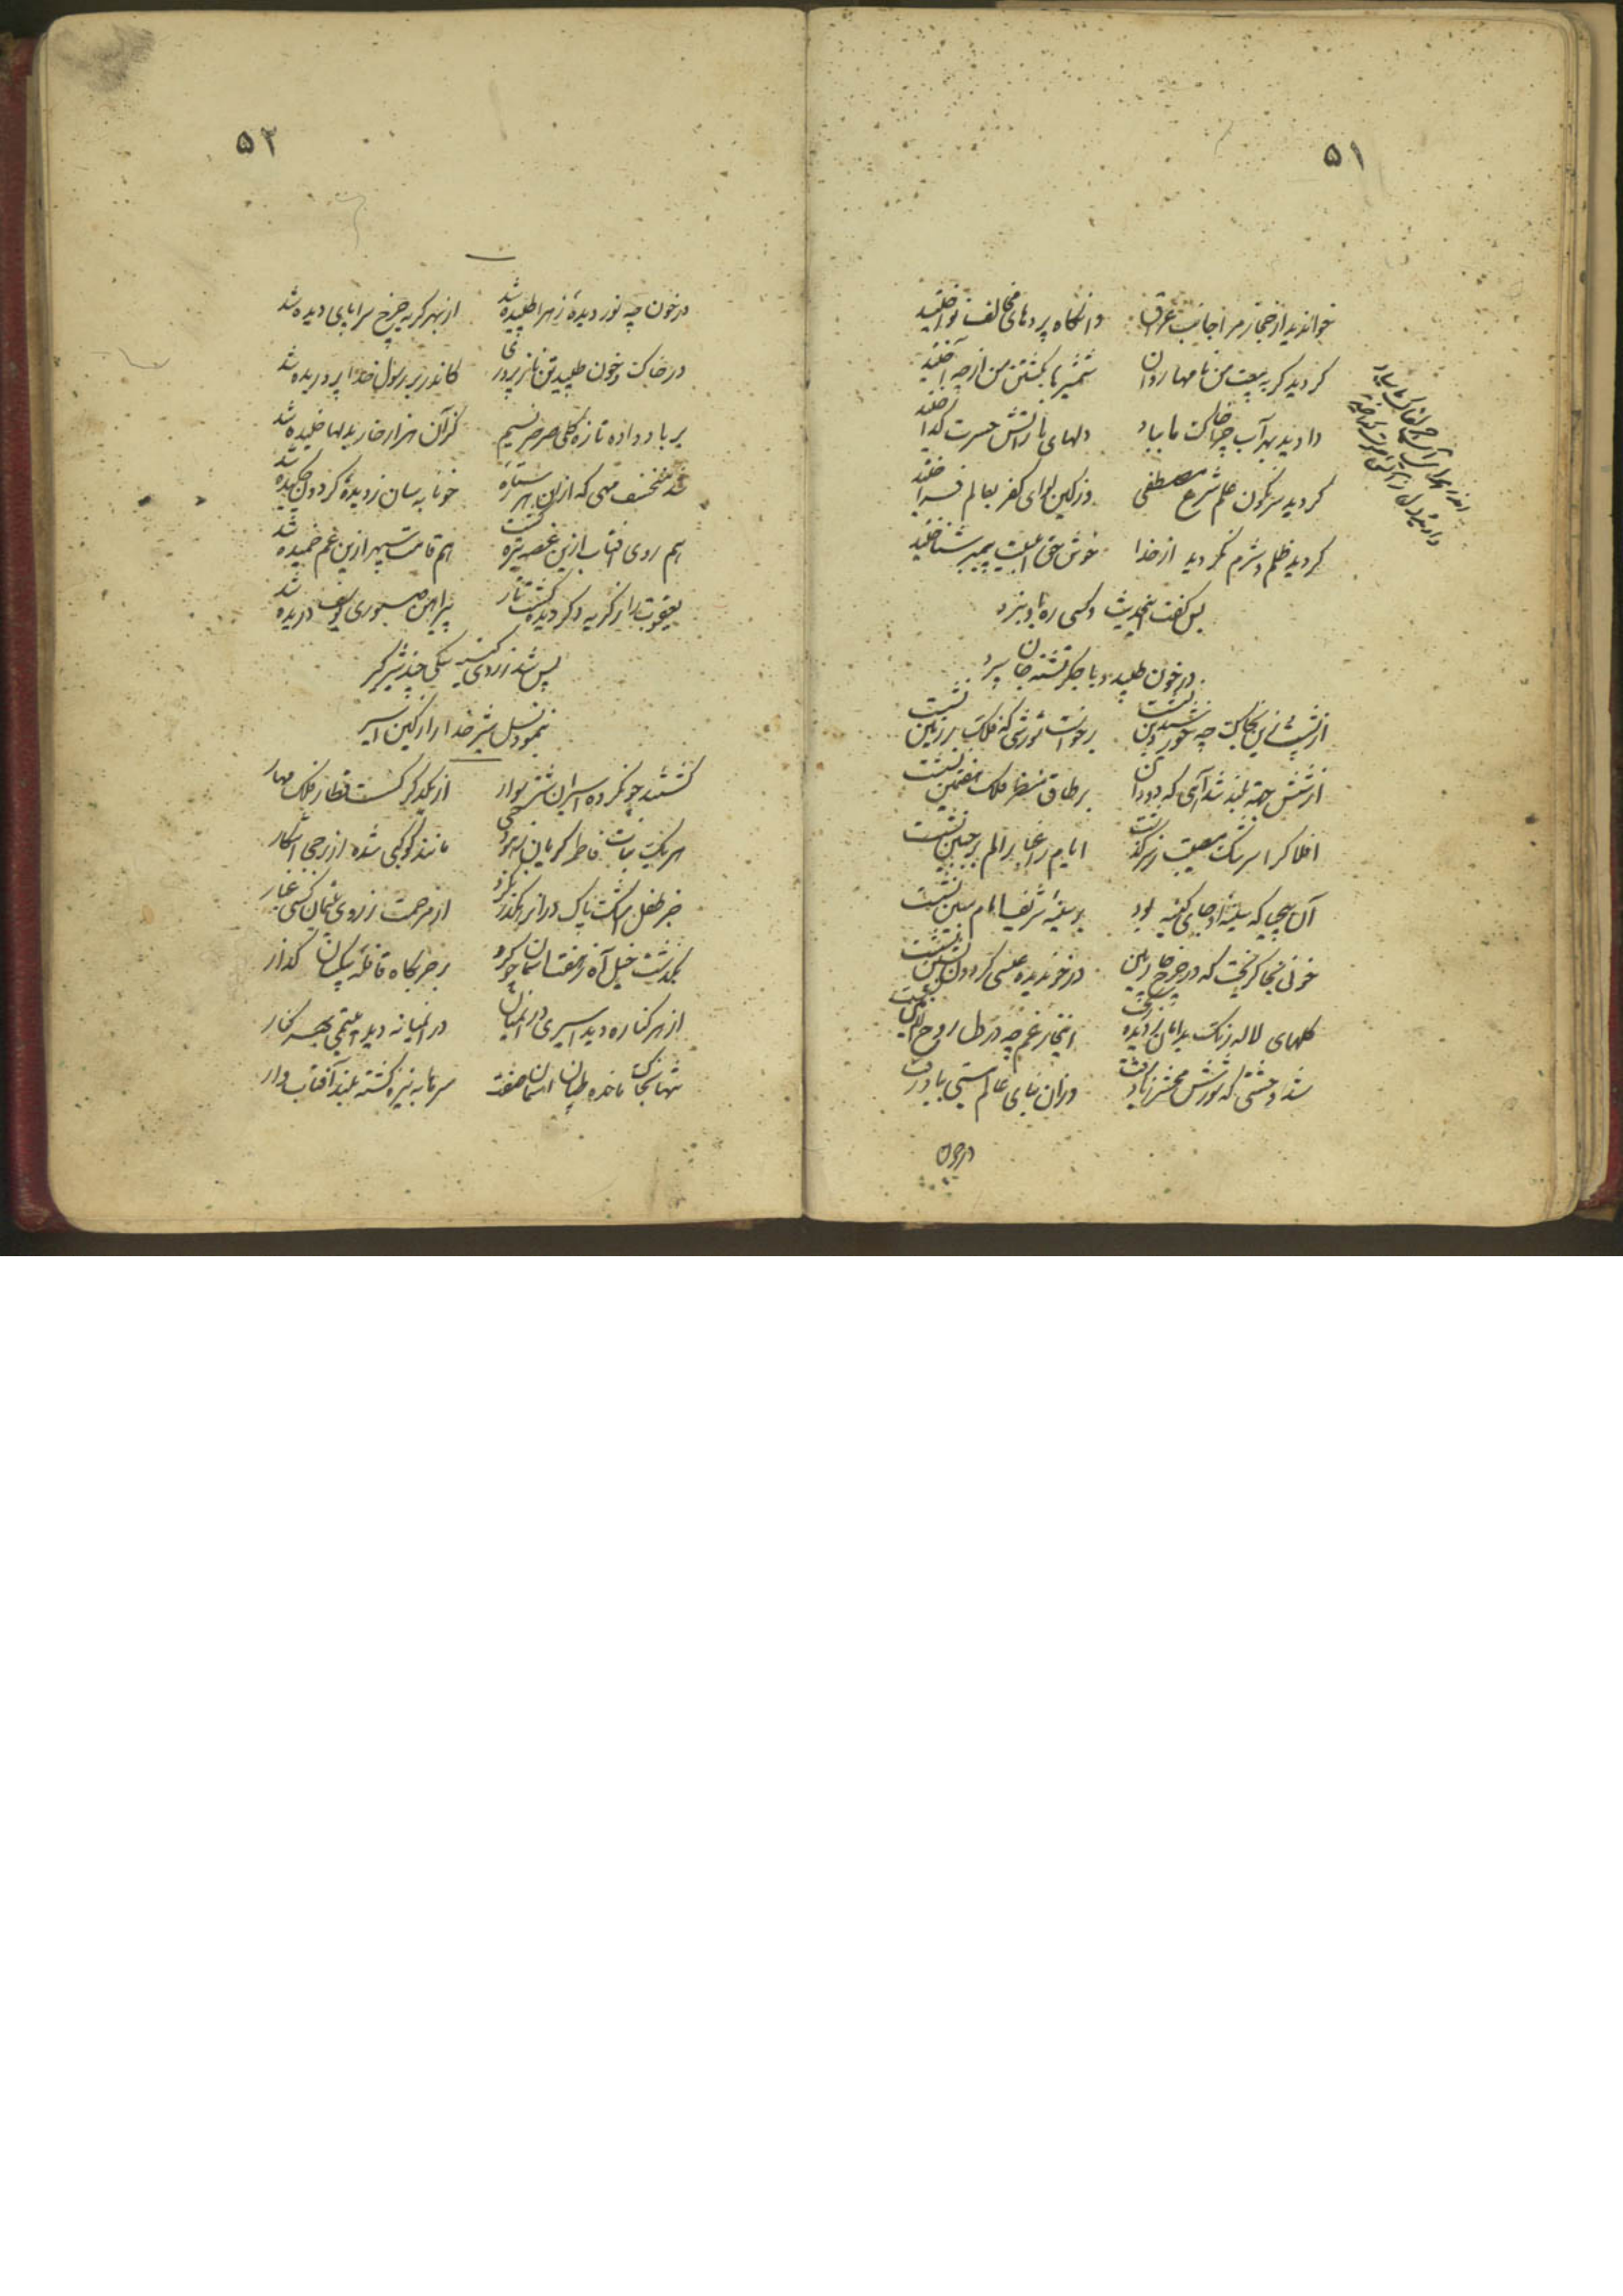 ۵۱
خواندید از حجاز مرا جانب عراق وانگاه پردهای مخالف نواختید
کردید گر به بیعت من نامها روان شمشیرها بکشتن من از چه آختید
دادید بهر آب چرا خاک ما بباد دلهای ما ز آتش حسرت گداختید
کردید سرنگون علم شرع مصطفی وز کین لوای کفر بعالم فراختید
کردید ظلم و شرم نکردید از خدا خوش حق اهلبیت پیمبر شناختید
پس گفت این حدیث و کسی ره باو نبرد
در خون طپید و با جگر تشنه جان سپرد
از پشت زین بخاک چه خورشید دین نشست برخواست شورشی که فلک بر زمین نشست
از شش جهة بلند شد آهی که دود آن بر طاق منظر فلک هفتمین نشست
افلاک را سرشک مصیبت ز سر گذشت ایام را غبار الم بر جبین نشست
آن بیحیا که سینه او جای کینه بود بر سینه شریف امام مبین نشست
خونی بخاک ریخت که در چرخ چارمین در خون دیده عیسی گردون نشین نشست
گلهای لاله رنگ بدامان ز دیده ریخت از خار غم چه در دل روح الامین
شد وحشتی که شورش محشر ز یاد رفت وزان بنای عالم هستی بباد رفت
در خون
۵۲
در خون چه نور دیدهٔ زهرا طپیده شد از بهر گریه چرخ سراپای دیده شد
در خاک و خون طپید تن نازپروری کاندر بر رسول خدا پروریده شد
بر باد داده تازه گلی صرصر نسیم کز آن هزار خار بدلها خلیده شد
شد منخسف مهی که از آن هر ستاره خونابه سان ز دیدهٔ گردون چکیده شد
هم روی آفتاب ازین غصه تیره گشت هم قامت سپهر ازین غم خمیده شد
یعقوب را ز گریه دگر دیده گشت تار پیراهن صبوری یوسف دریده شد
پس شد ز روی کینه سگی چند شیرگیر
نمود نسل شیر خدا را ز کین اسیر
گشتند چون گروه اسیران شتر سوار از یکدگر گسست قطار فلک مهار
هر یک بنات فاطمه گریان نمود رخ مانند کوکبی شده از برجی آشکار
جز طفل اشک پاک در آن رهگذر نکرد از مرحمت ز روی یتیمان کسی غبار
بگذشت خیل آه ز هفت آسمان چو کرد بر حربگاه قافله بیکسان گذار
از هر کناره دید اسیری در آنمیان در آنمیانه دید یتیمی بهر کنار
تنها بخاک مانده طپان آسمان صفت سرها به نیزه گشته بلند آفتاب وار